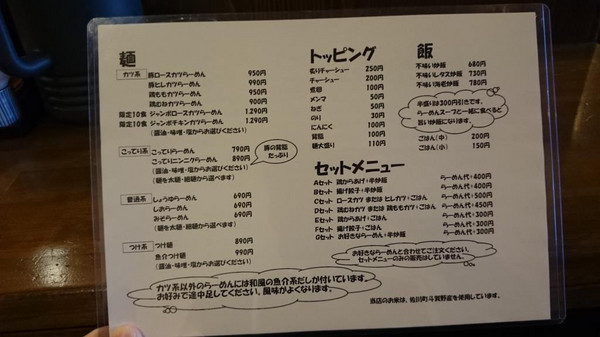 麺
カツ系
豚ロースカツらーめん 950円
豚ヒレカツらーめん 990円
鶏ももカツらーめん 950円
鶏むねカツらーめん 900円
限定10食 ジャンボロースカツらーめん 1,290円
限定10食 ジャンボチキンカツらーめん 1,290円
(醤油・味噌・塩からお選びください)
こってり系
こってりらーめん 790円
こってりニンニクらーめん 890円
(醤油・味噌・塩からお選びください)
(麺を太麺・細麺から選べます)
豚の背脂
たっぷり
普通系
しょうゆらーめん 690円
しおらーめん 690円
みそらーめん 690円
(麺を太麺・細麺から選べます)
つけ系
つけ麺 890円
魚介つけ麺 990円
(醤油・味噌・塩からお選びください)
カツ系以外のらーめんには和風の魚介系だしが付いています。
お好みで途中足してください、風味がよくなります。
トッピング
炙りチャーシュー 250円
チャーシュー 200円
煮卵 100円
メンマ 50円
ねぎ 50円
のり 30円
にんにく 100円
背脂 100円
麺大盛り 110円
飯
不味い炒飯 680円
不味いレタス炒飯 730円
不味い海老炒飯 780円
半盛りは300円引きです。
らーめんスープと一緒に食べると
旨い炒飯になります。
ごはん(中) 200円
ごはん(小) 150円
セットメニュー
Aセット 鶏からあげ+半炒飯 らーめん代+400円
Bセット 揚げ餃子+半炒飯 らーめん代+400円
Cセット ロースカツ または ヒレカツ+ごはん らーめん代+500円
Dセット 鶏むねカツ または 鶏ももカツ+ごはん らーめん代+450円
Eセット 鶏からあげ+ごはん らーめん代+300円
Fセット 揚げ餃子+ごはん らーめん代+300円
Gセット お好きならーめん+半炒飯 らーめん代+300円
お好きならーめんと合わせてご注文ください。
セットメニューのみの販売はしていません。
当店のお米は、佐川町斗賀野産を使用しています。